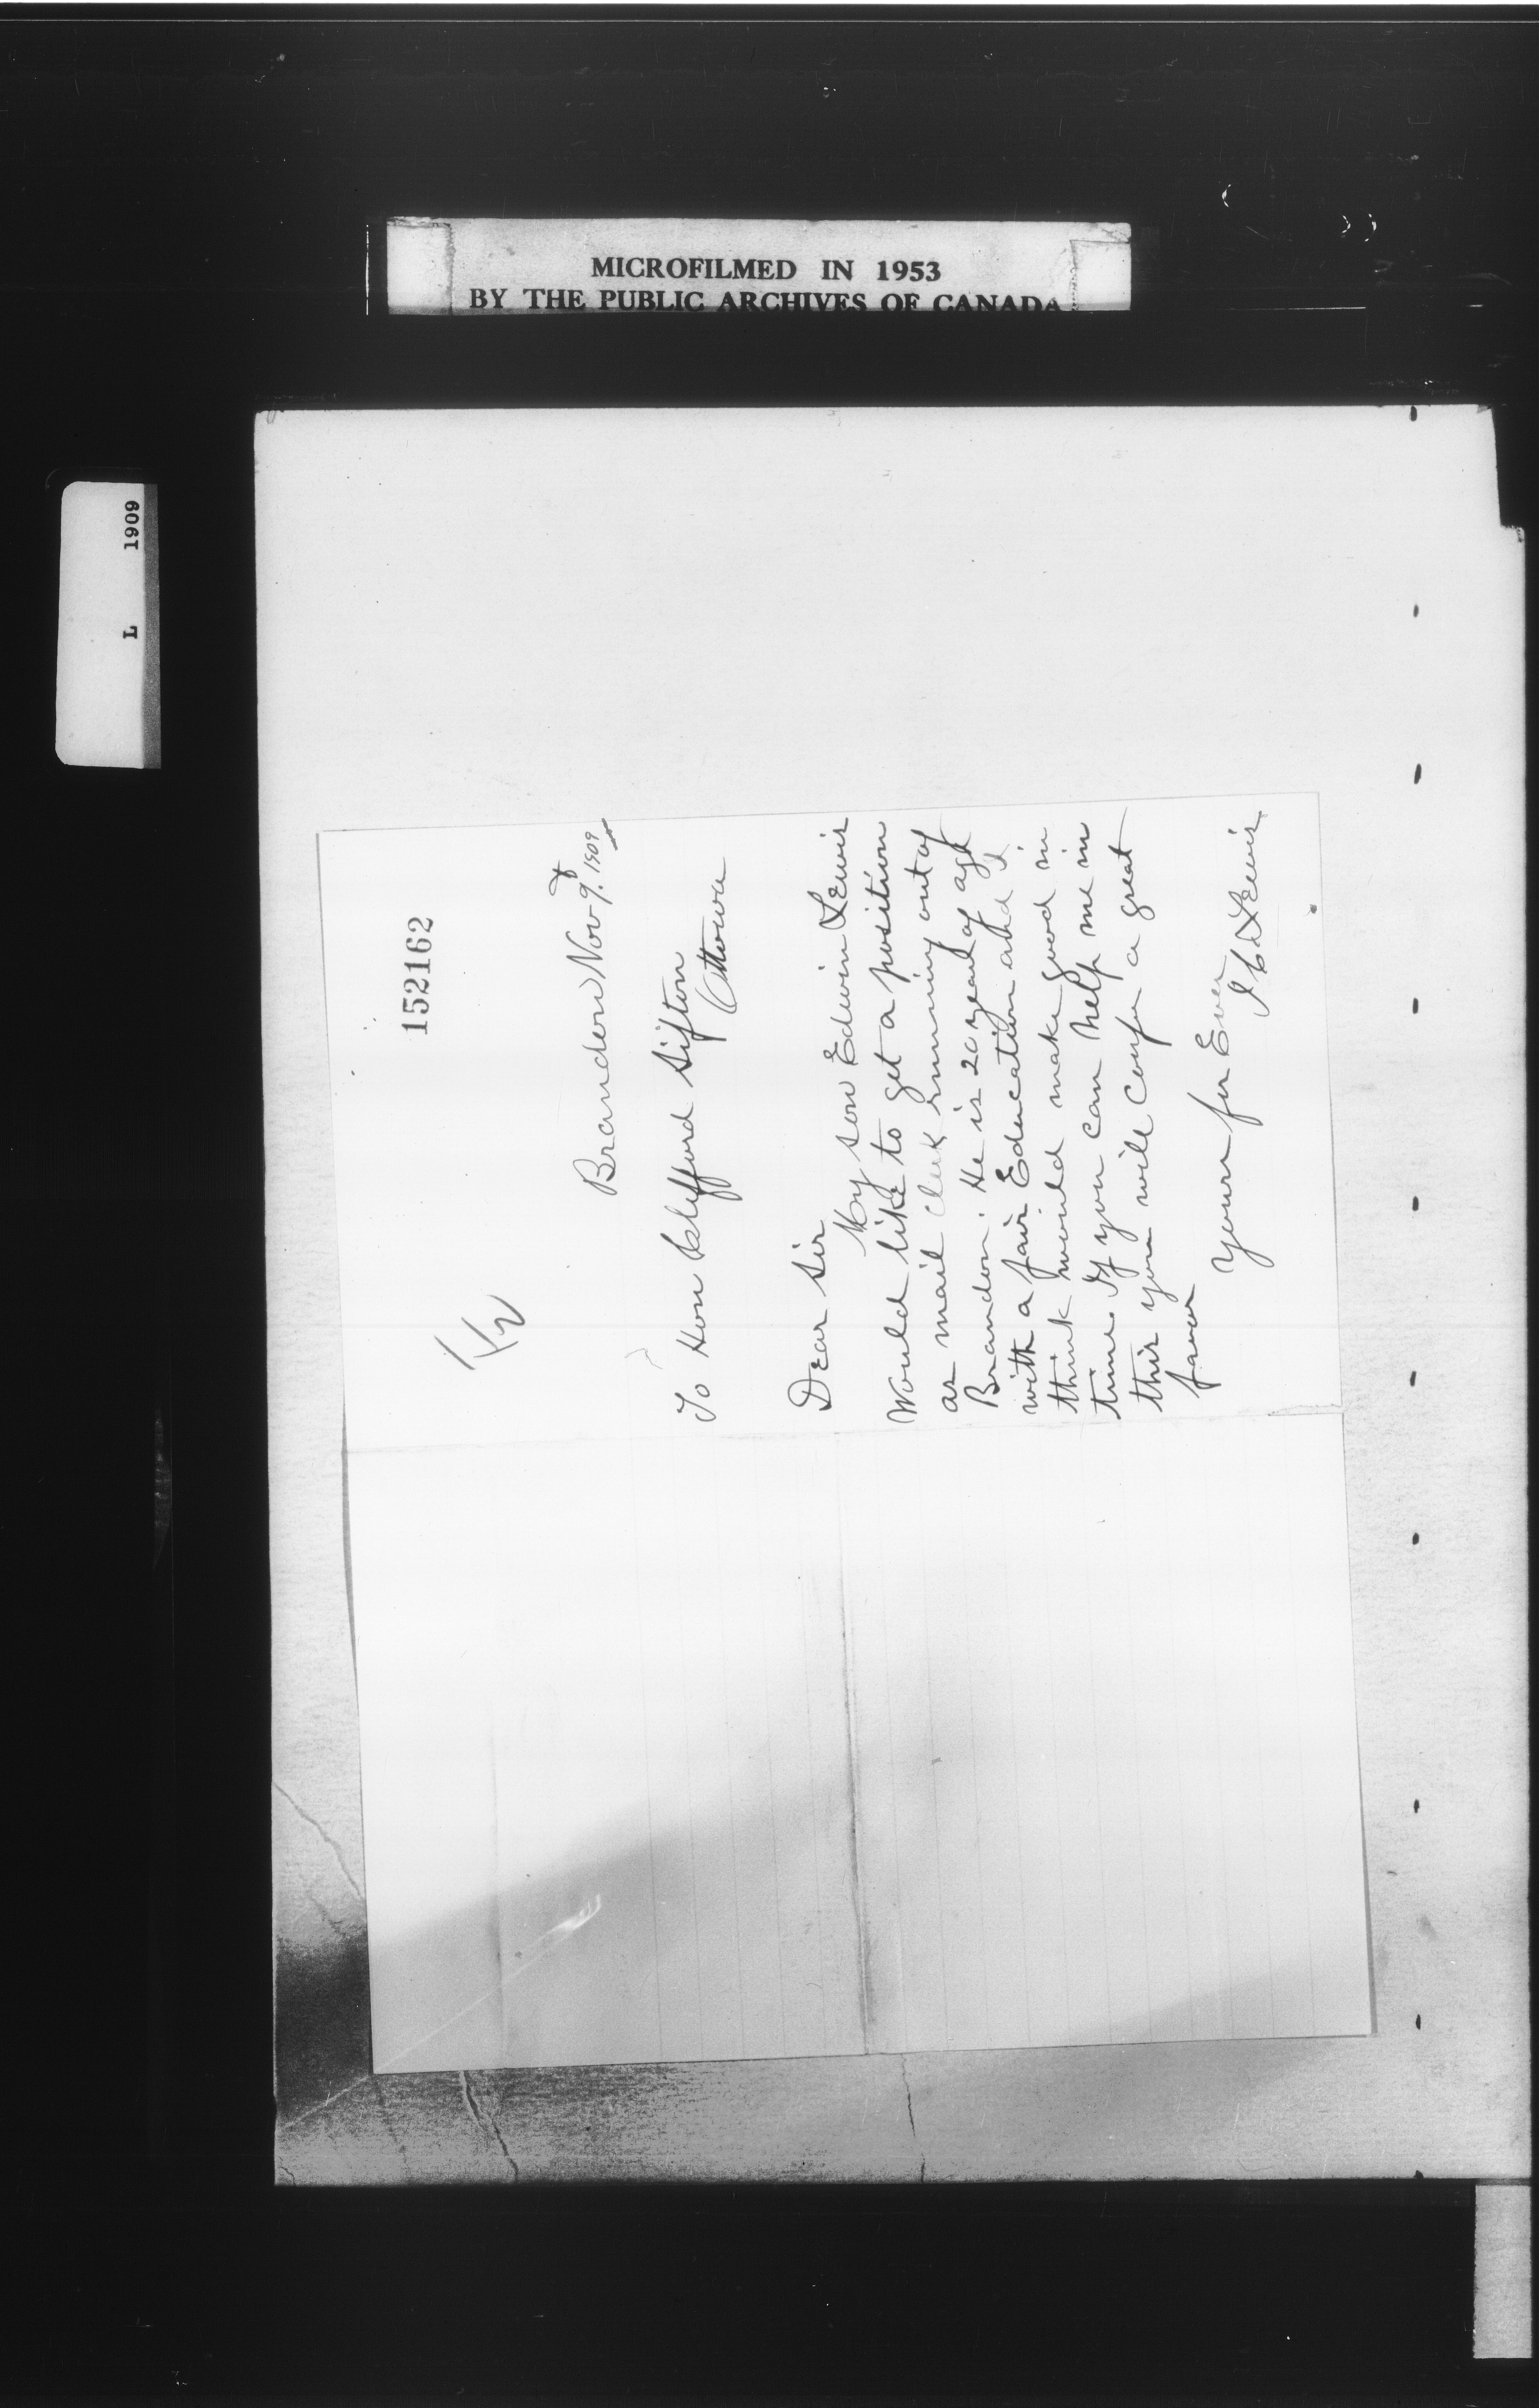 MICROFILMED IN 1953
BY THE PUBLIC ARCHIVES OF CANADA
L 1909
152162
Brandon Nov 9. 1909
To Hon Clifford Sifton
Ottowa
Dear Sir
My son Edwin Lewis
Would like to get a position
as mail Clerk running out of
Brandon. He is 20 years of age
with a fair Education and I
think would make good in
time. If you can help me in
this you will confer a great
favor
yours for Ever
Lewis